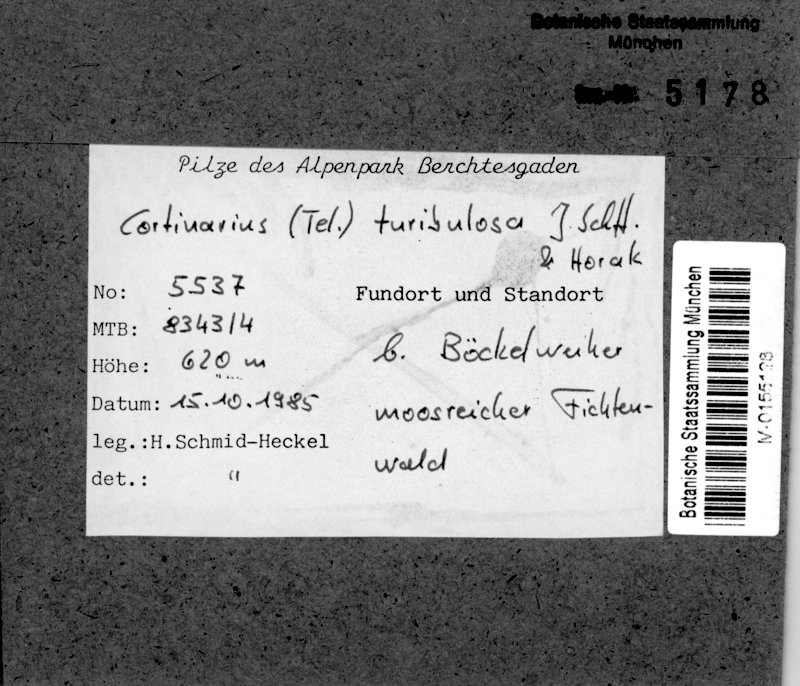 Botanische Staatssammlung
München
5178
Pilze des Alpenpark Berchtesgaden
Cortinarius (Tel.) turibulosa J. Schff.
& Horak
No: 5537
MTB: 8343/4
Höhe: 620 m
Datum: 15.10.1985
leg.:H.Schmid-Heckel
det.: "
Fundort und Standort
b. Böckelweiher
moosreicher Fichten-
wald
Botanische Staatssammlung München